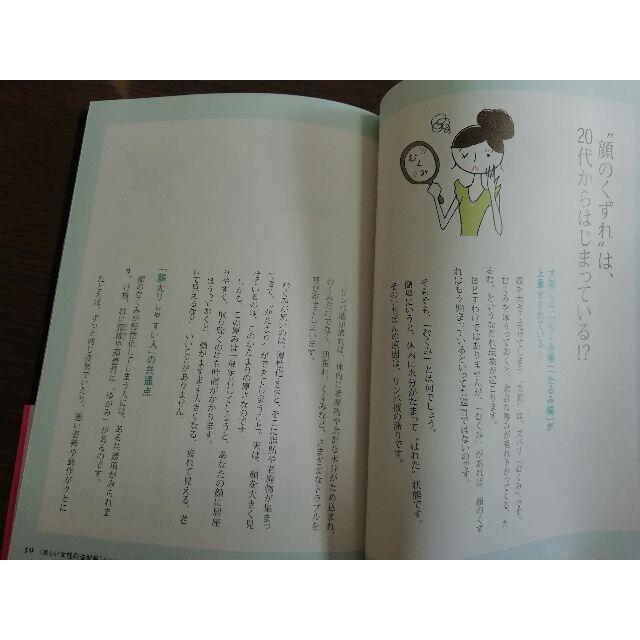 “顔のくずれ”は、
20代からはじまっている!?
むくみ
大顔には「むくみ編」「たるみ編」が
上乗せされている!
顔を大きく見せてしまう
むくみをほうっておくと、余計な厚みが垂れ下がってくる、た
るむ、というくずれ現象が起こります。
ほどすわけではありませんが、「むくみ」があれば、顔のくず
れはもう始まっているといっても過言ではないのです。
そもそも、「むくみ」とは何でしょう。
簡単にいうと、体内に水分がたまって“はれた”状態です。
そのいちばんの原因は、リンパ液の滞りです。
リンパ液が滞れば、体内に老廃物や余計な水分がため込まれ、
むくみだけでなく、肌荒れ、くすみなど、さまざまなトラブルを
呼び寄せてしまいます。
むくみが怖いのは、慢性化すると、そこに脂肪や老廃物が集まっ
てきて、「かたまり」ができてしまうこと。実は、顔を大きく見
せているのは、このかたまりの厚みなのです。
しかも、この厚みは一度定着してしまうと、あなたの顔に居座
りやすく、取り除くのにも手間がかかります。
ほうっておくと、顔がますます大きくなる、疲れて見える、老
けて見えるなど、いいことがありません。
「顔太りしやすい人」の共通点
顔のむくみが慢性化してしまう人には、ある共通項がみられま
す。骨格、特に頸椎や肩甲骨に「ゆがみ」があるのです。
たとえば、ずっと同じ姿勢でいたり、悪い姿勢や動作がクセに
19